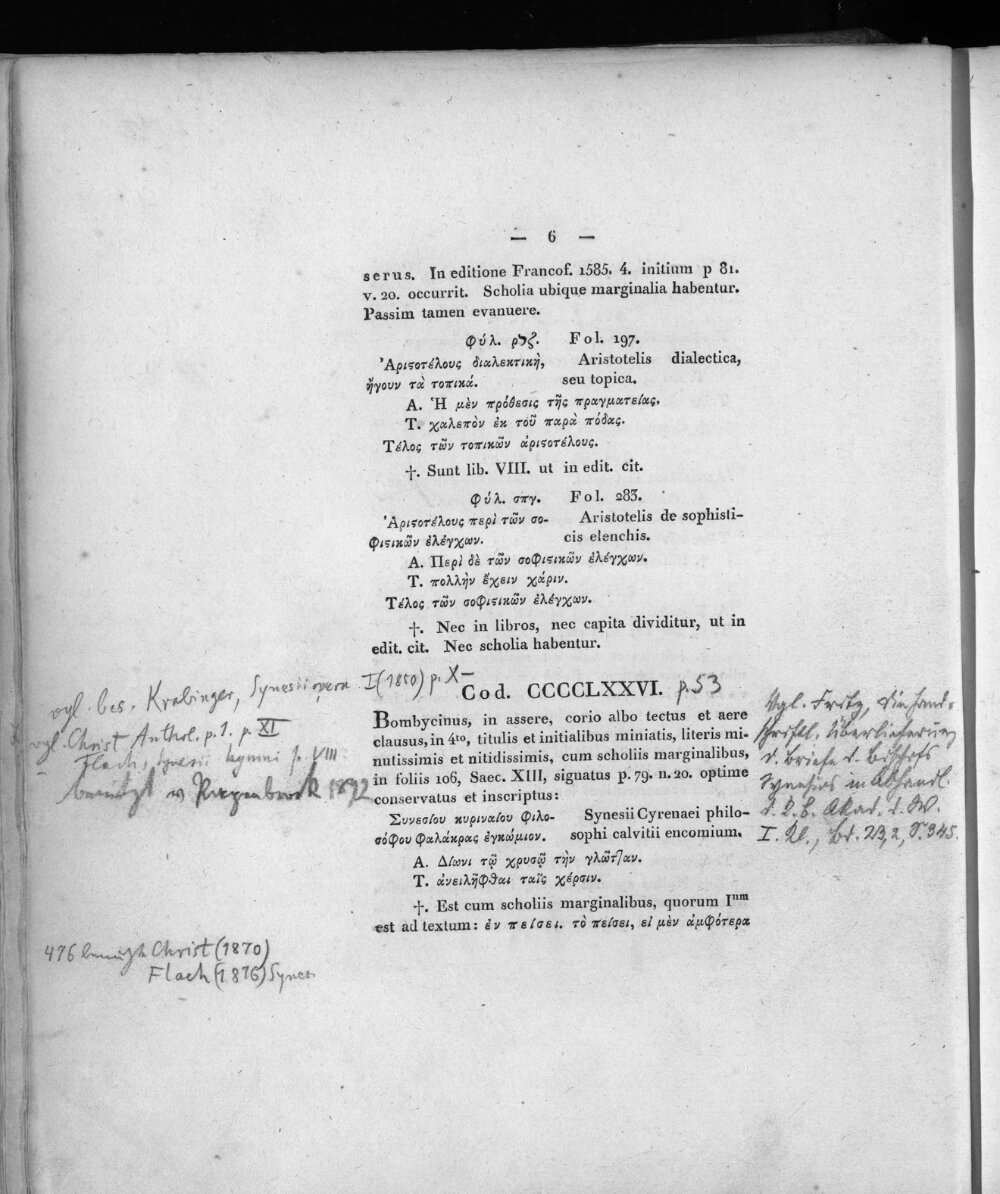 — 6 —
serus. In editione Francof. 1585. 4. initium p 81.
v. 20. occurrit. Scholia ubique marginalia habentur.
Passim tamen evanuere.
Φύλ. ρϟζ. Fol. 197.
Ἀριϛοτέλους διαλεκτικὴ, Aristotelis dialectica,
ἤγουν τὰ τοπικά. seu topica.
A. Ἡ μὲν πρόθεσις τῆς πραγματείας.
T. χαλεπὸν ἐκ τοῦ παρὰ πόδας.
Τέλος τῶν τοπικῶν ἀριϛοτέλους.
†. Sunt lib. VIII. ut in edit. cit.
Φύλ. σπγ. Fol. 283.
Ἀριϛοτέλους περὶ τῶν σο- Aristotelis de sophisti-
φιϛικῶν ἐλέγχων. cis elenchis.
A. Περὶ δὲ τῶν σοφιϛικῶν ἐλέγχων.
T. πολλὴν ἔχειν χάριν.
Τέλος τῶν σοφιϛικῶν ἐλέγχων.
†. Nec in libros, nec capita dividitur, ut in
edit. cit. Nec scholia habentur.
Cod. CCCCLXXVI. p. 53
Bombycinus, in assere, corio albo tectus et aere
clausus, in 4to, titulis et initialibus miniatis, literis mi-
nutissimis et nitidissimis, cum scholiis marginalibus,
in foliis 106, Saec. XIII, signatus p. 79. n. 20. optime
conservatus et inscriptus:
Συνεσίου κυριναίου φιλο- Synesii Cyrenaei philo-
σόφου φαλάκρας ἐγκώμιον. sophi calvitii encomium.
A. Δίωνι τῷ χρυσῷ τὴν γλῶτταν.
T. ἀνειλῆφθαι ταῖς χέρσιν.
†. Est cum scholiis marginalibus, quorum Ium
est ad textum: ἐν πείσει. τὸ πείσει, εἰ μὲν ἀμφότερα
vgl. bes. Krabinger, Synesii opera I (1850) p. X
vgl. Christ Anthol. p. 1. p. XI
Flach, Synesii hymni p. VIII
benützt v 1892
Vgl. Fritz, die hand-
schriftl. Überlieferung
d. Briefe d. Bischofs
Synesius in Abhandl.
d. K. b. Akad. d. W.
I. Kl., Bd. 23,2, S. 345.
476 benützt Christ (1870)
Flach (1876) Synes.